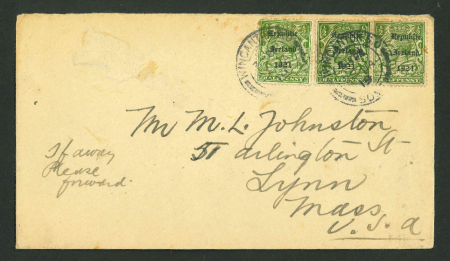 Republic Republic Republic
Ireland Ireland Ireland
1921 1921 1921
Mr M. L. Johnston
51 arlington St
Lynn
Mass
U. S. a
If away
Please
forward.